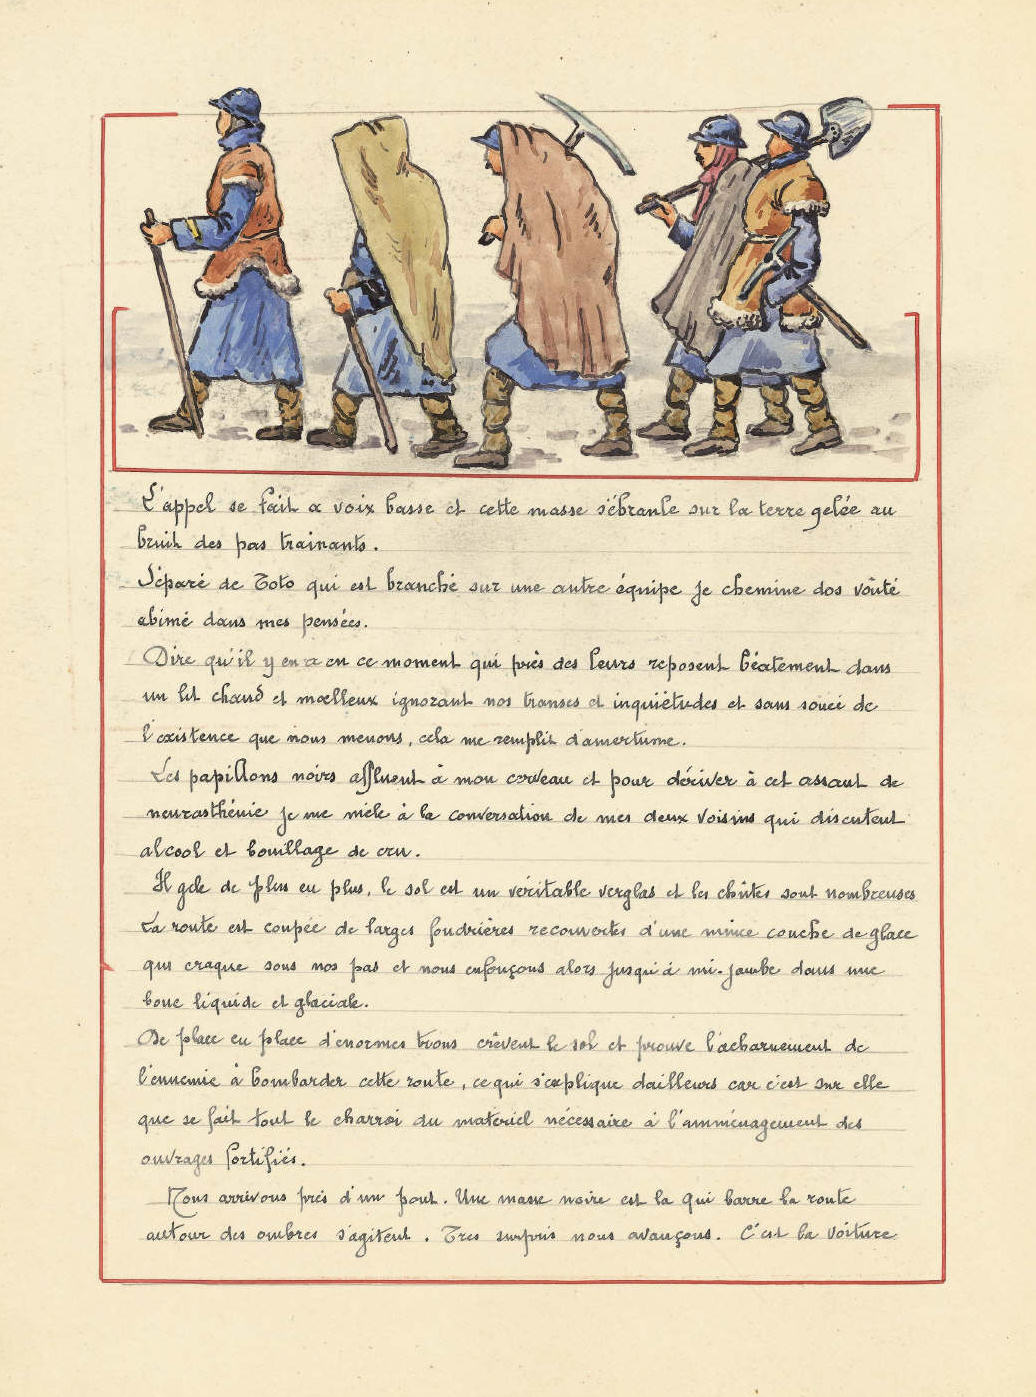 L'appel se fait a voix basse et cette masse s'ébranle sur la terre gelée au
bruit des pas trainants.
Séparé de Toto qui est branché sur une autre équipe je chemine dos voûté
abimé dans mes pensées.
Dire qu'il y en a en ce moment qui près des leurs reposent béatement dans
un lit chaud et mœlleux ignorant nos transes et inquiétudes et sans souci de
l'existence que nous menons, cela me remplit d'amertume.
Les papillons noirs affluent à mon cerveau et pour dériver à cet assaut de
neurasthénie je me mêle à la conversation de mes deux voisins qui discutent
alcool et bouillage de cru.
Il gèle de plus en plus, le sol est un véritable verglas et les chûtes sont nombreuses
La route est coupée de larges fondrières recouvertes d'une mince couche de glace
qui craque sous nos pas et nous enfonçons alors jusqu'à mi-jambe dans une
boue liquide et glaciale.
De place en place d'énormes trous crèvent le sol et prouve l'acharnement de
l'ennemie à bombarder cette route, ce qui s'explique dailleurs car c'est sur elle
que se fait tout le charroi du materiel nécessaire à l'amménagement des
ouvrages fortifiés.
Nous arrivons près d'un pont. Une masse noire est la qui barre la route
autour des ombres s'agitent. Tres surpris nous avançons. C'est la voiture